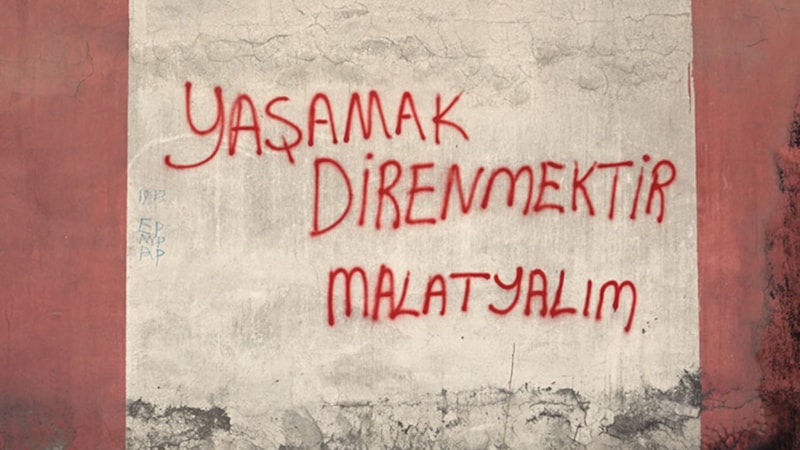 YAŞAMAK
DİRENMEKTİR
MALATYALIM